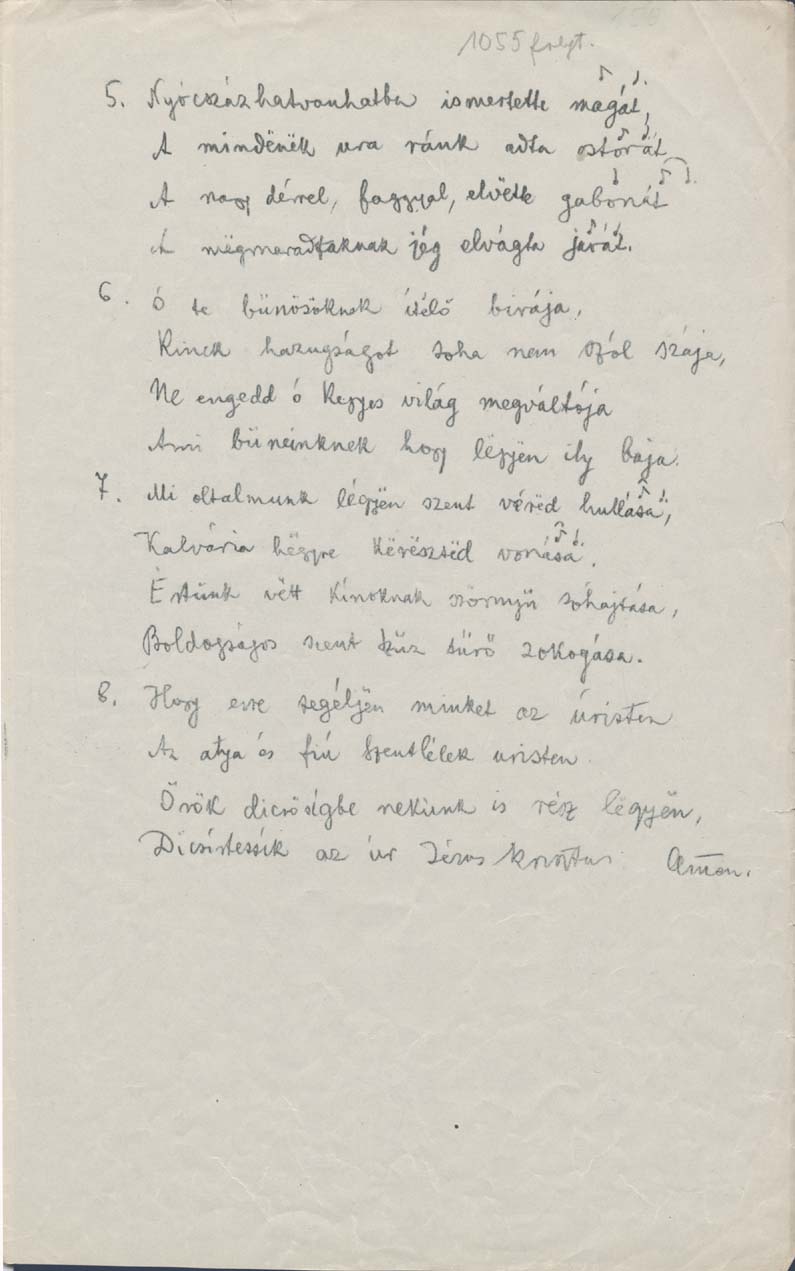 1055 folyt.
5. Nyócszázhatvanhatba ismertette magát,
A mindënëk ura ránk adta ostorát
A nagy dérrel, faggyal, elvëtte gabonát
A mëgmaradtaknak jég elvágta járát.
6. Ó te bünösöknek ítélő birája,
Kinek hazugságot soha nem szól szája,
Ne engedd ó kegyes világ megváltója
Ami bűneinknek hogy légyjën ily bája.
7. Mi oltalmunk légyjën szent vérëd hullása,
Kalvária hëgyre këresztëd vonása.
Értünk vëtt kínoknak szörnyű sóhajtása,
Boldogságos szent szűz tűrő zokogása.
8. Hogy erre segéljën minket az úristen
Az atya és fiú szentlélek uristen.
Örök dicsőségbe nekünk is rész légyën,
Dicsírtessík az úr Jézus krisztus Amen.